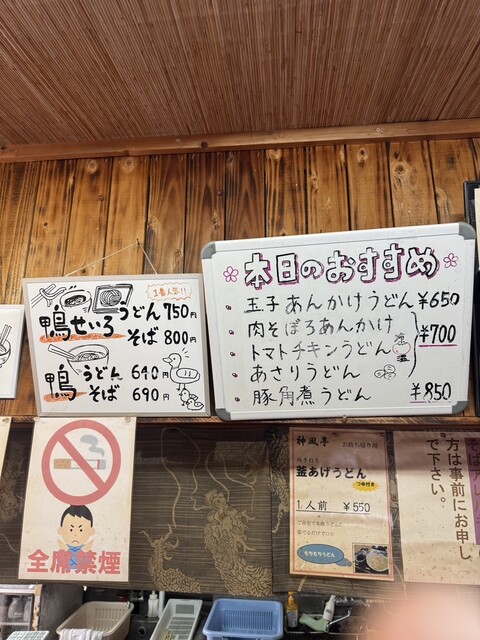 1番人気!!
鴨せいろ うどん 750円
そば 800円
鴨 うどん 640円
そば 690円
本日のおすすめ
玉子あんかけうどん ¥650
肉そぼろあんかけ
トマトチキンうどん ¥700
あさりうどん
豚角煮うどん ¥850
全席禁煙
神風亭 お持ち帰り用
釜あげうどん
つゆ付き
1人前 ¥550
もりもりうどん
そばアレル
方は事前にお申し
で下さい。